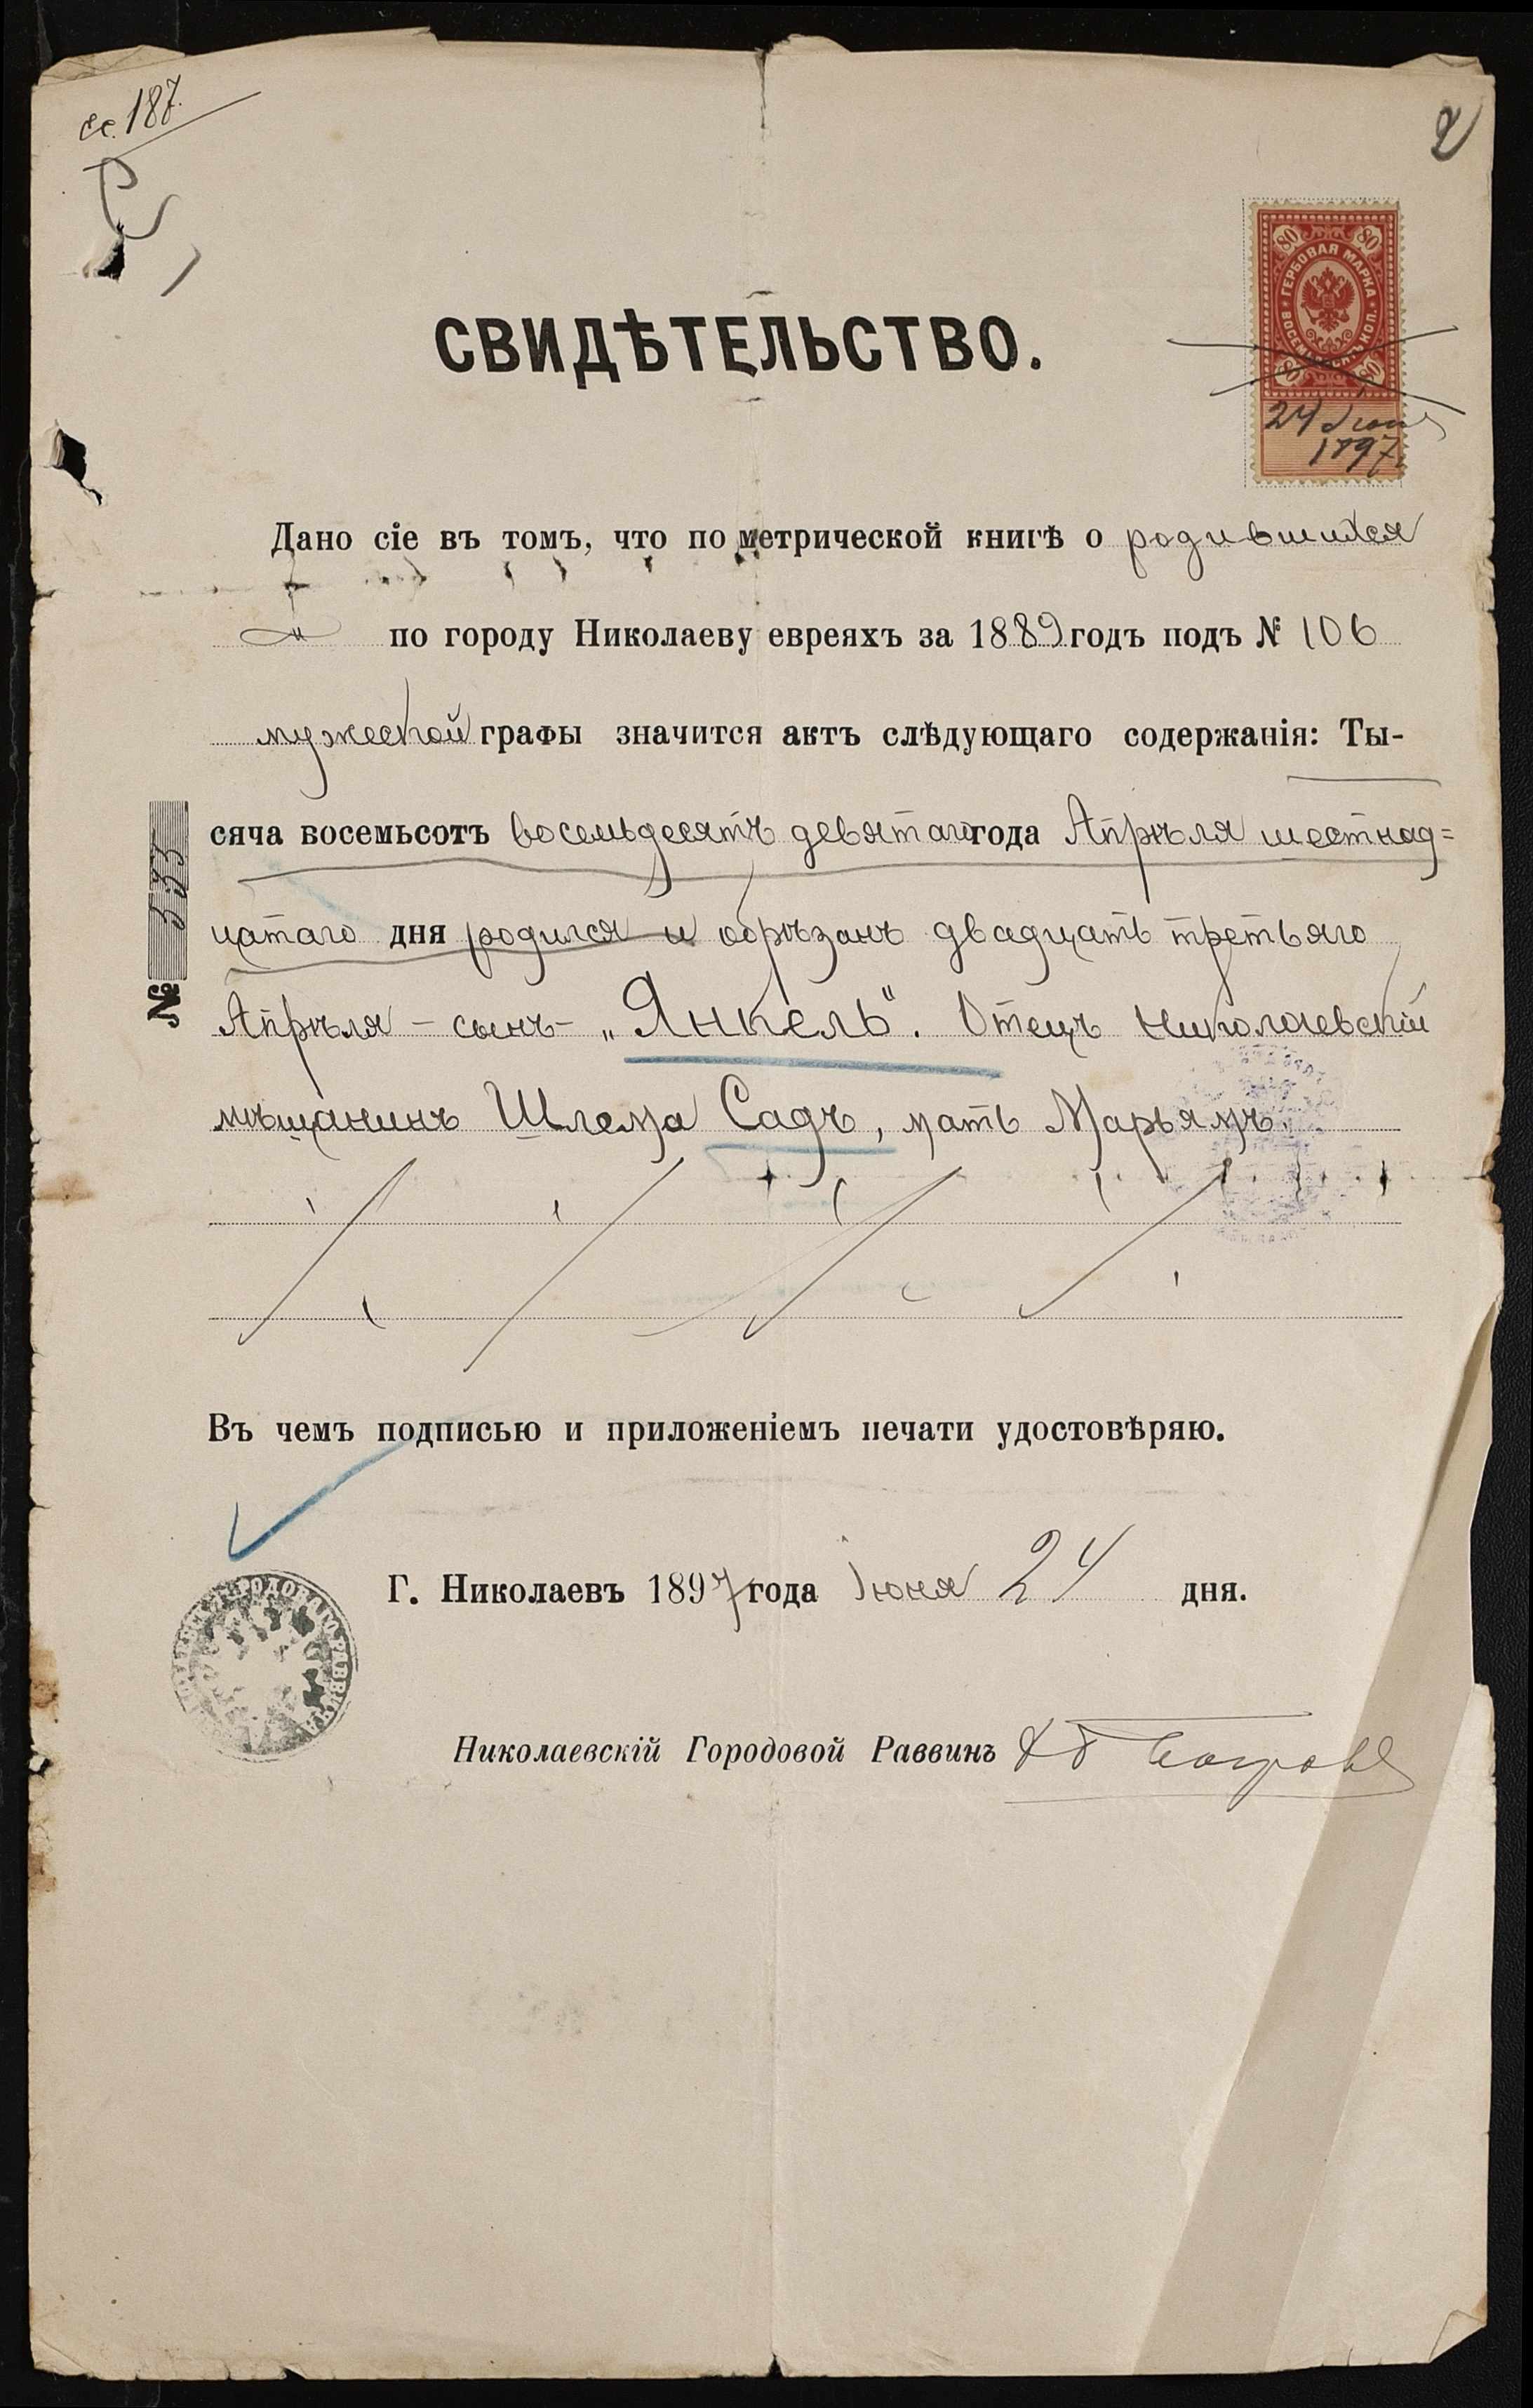 187.
2
80 80
ГЕРБОВАЯ МАРКА
ВОСЕМЬДЕСЯТЪ КОП.
80 80
24 Iюня
1897
СВИДѢТЕЛЬСТВО.
Дано сіе въ томъ, что по метрической книгѣ о родившихся
„ по городу Николаеву евреяхъ за 1889 годъ подъ № 106
мужеской графы значится актъ слѣдующаго содержанія: Ты-
сяча восемьсотъ восемьдесятъ девятаго года Апрѣля шестнад=
цатаго дня родился и обрѣзанъ двадцать третьяго
Апрѣля – сынъ – „Янкель". Отецъ Николаевскій
мѣщанинъ Шлема Садъ, мать Марьямъ.
№ 333
Въ чемъ подписью и приложеніемъ печати удостовѣряю.
Г. Николаевъ 1897 года Іюня 24 дня.
Николаевскій Городовой Раввинъ